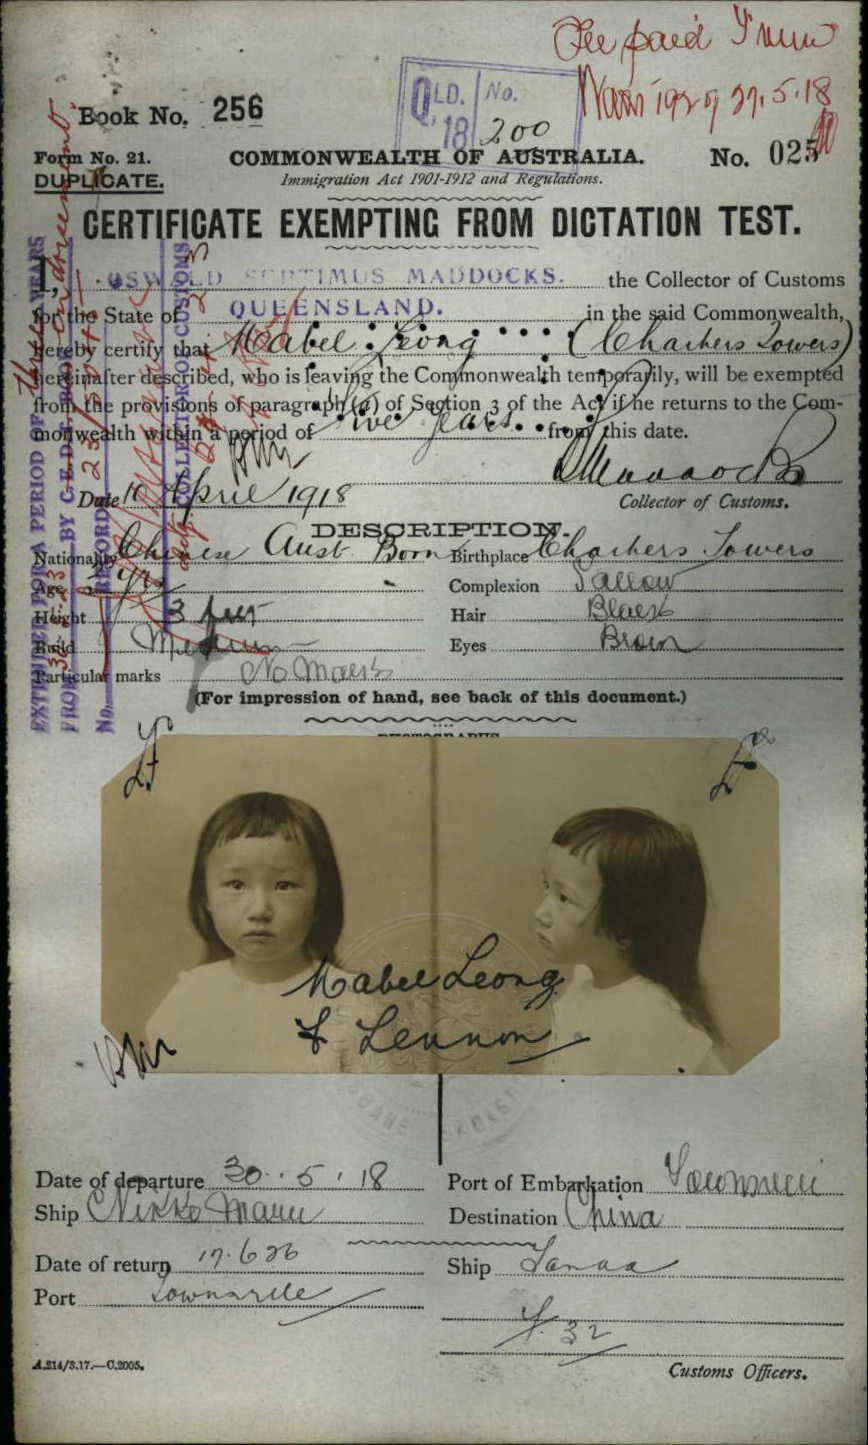 Fee paid
27.5.18
Book No. 256
QLD. No.
'18 200
Form No. 21.
COMMONWEALTH OF AUSTRALIA.
No. 025
DUPLICATE.
Immigration Act 1901-1912 and Regulations.
CERTIFICATE EXEMPTING FROM DICTATION TEST.
I, OSWALD SEPTIMUS MADDOCKS. the Collector of Customs
for the State of QUEENSLAND. in the said Commonwealth,
hereby certify that Mabel Leong (Charters Towers)
hereinafter described, who is leaving the Commonwealth temporarily, will be exempted
from the provisions of paragraph (a) of Section 3 of the Act if he returns to the Com-
monwealth within a period of Five years. from this date.
Date April 1918
Collector of Customs.
EXTENDED FOR A PERIOD OF Three YEARS
FROM BY
No. RECORD
COLLECTOR OF CUSTOMS
DESCRIPTION.
Nationality Chinese Aust. Born Birthplace Charters Towers
Age yrs Complexion Sallow
Height 3 feet Hair Black
Build Medium Eyes Brown
Particular marks No Marks
(For impression of hand, see back of this document.)
PHOTOGRAPHS
Mabel Leong
F Lennon
Date of departure 30.5.18 Port of Embarkation Townsville
Ship Nikko Maru Destination China
Date of return 17.6.26 Ship
Port Townsville
32
A.214/3.17.—C.2005.
Customs Officers.